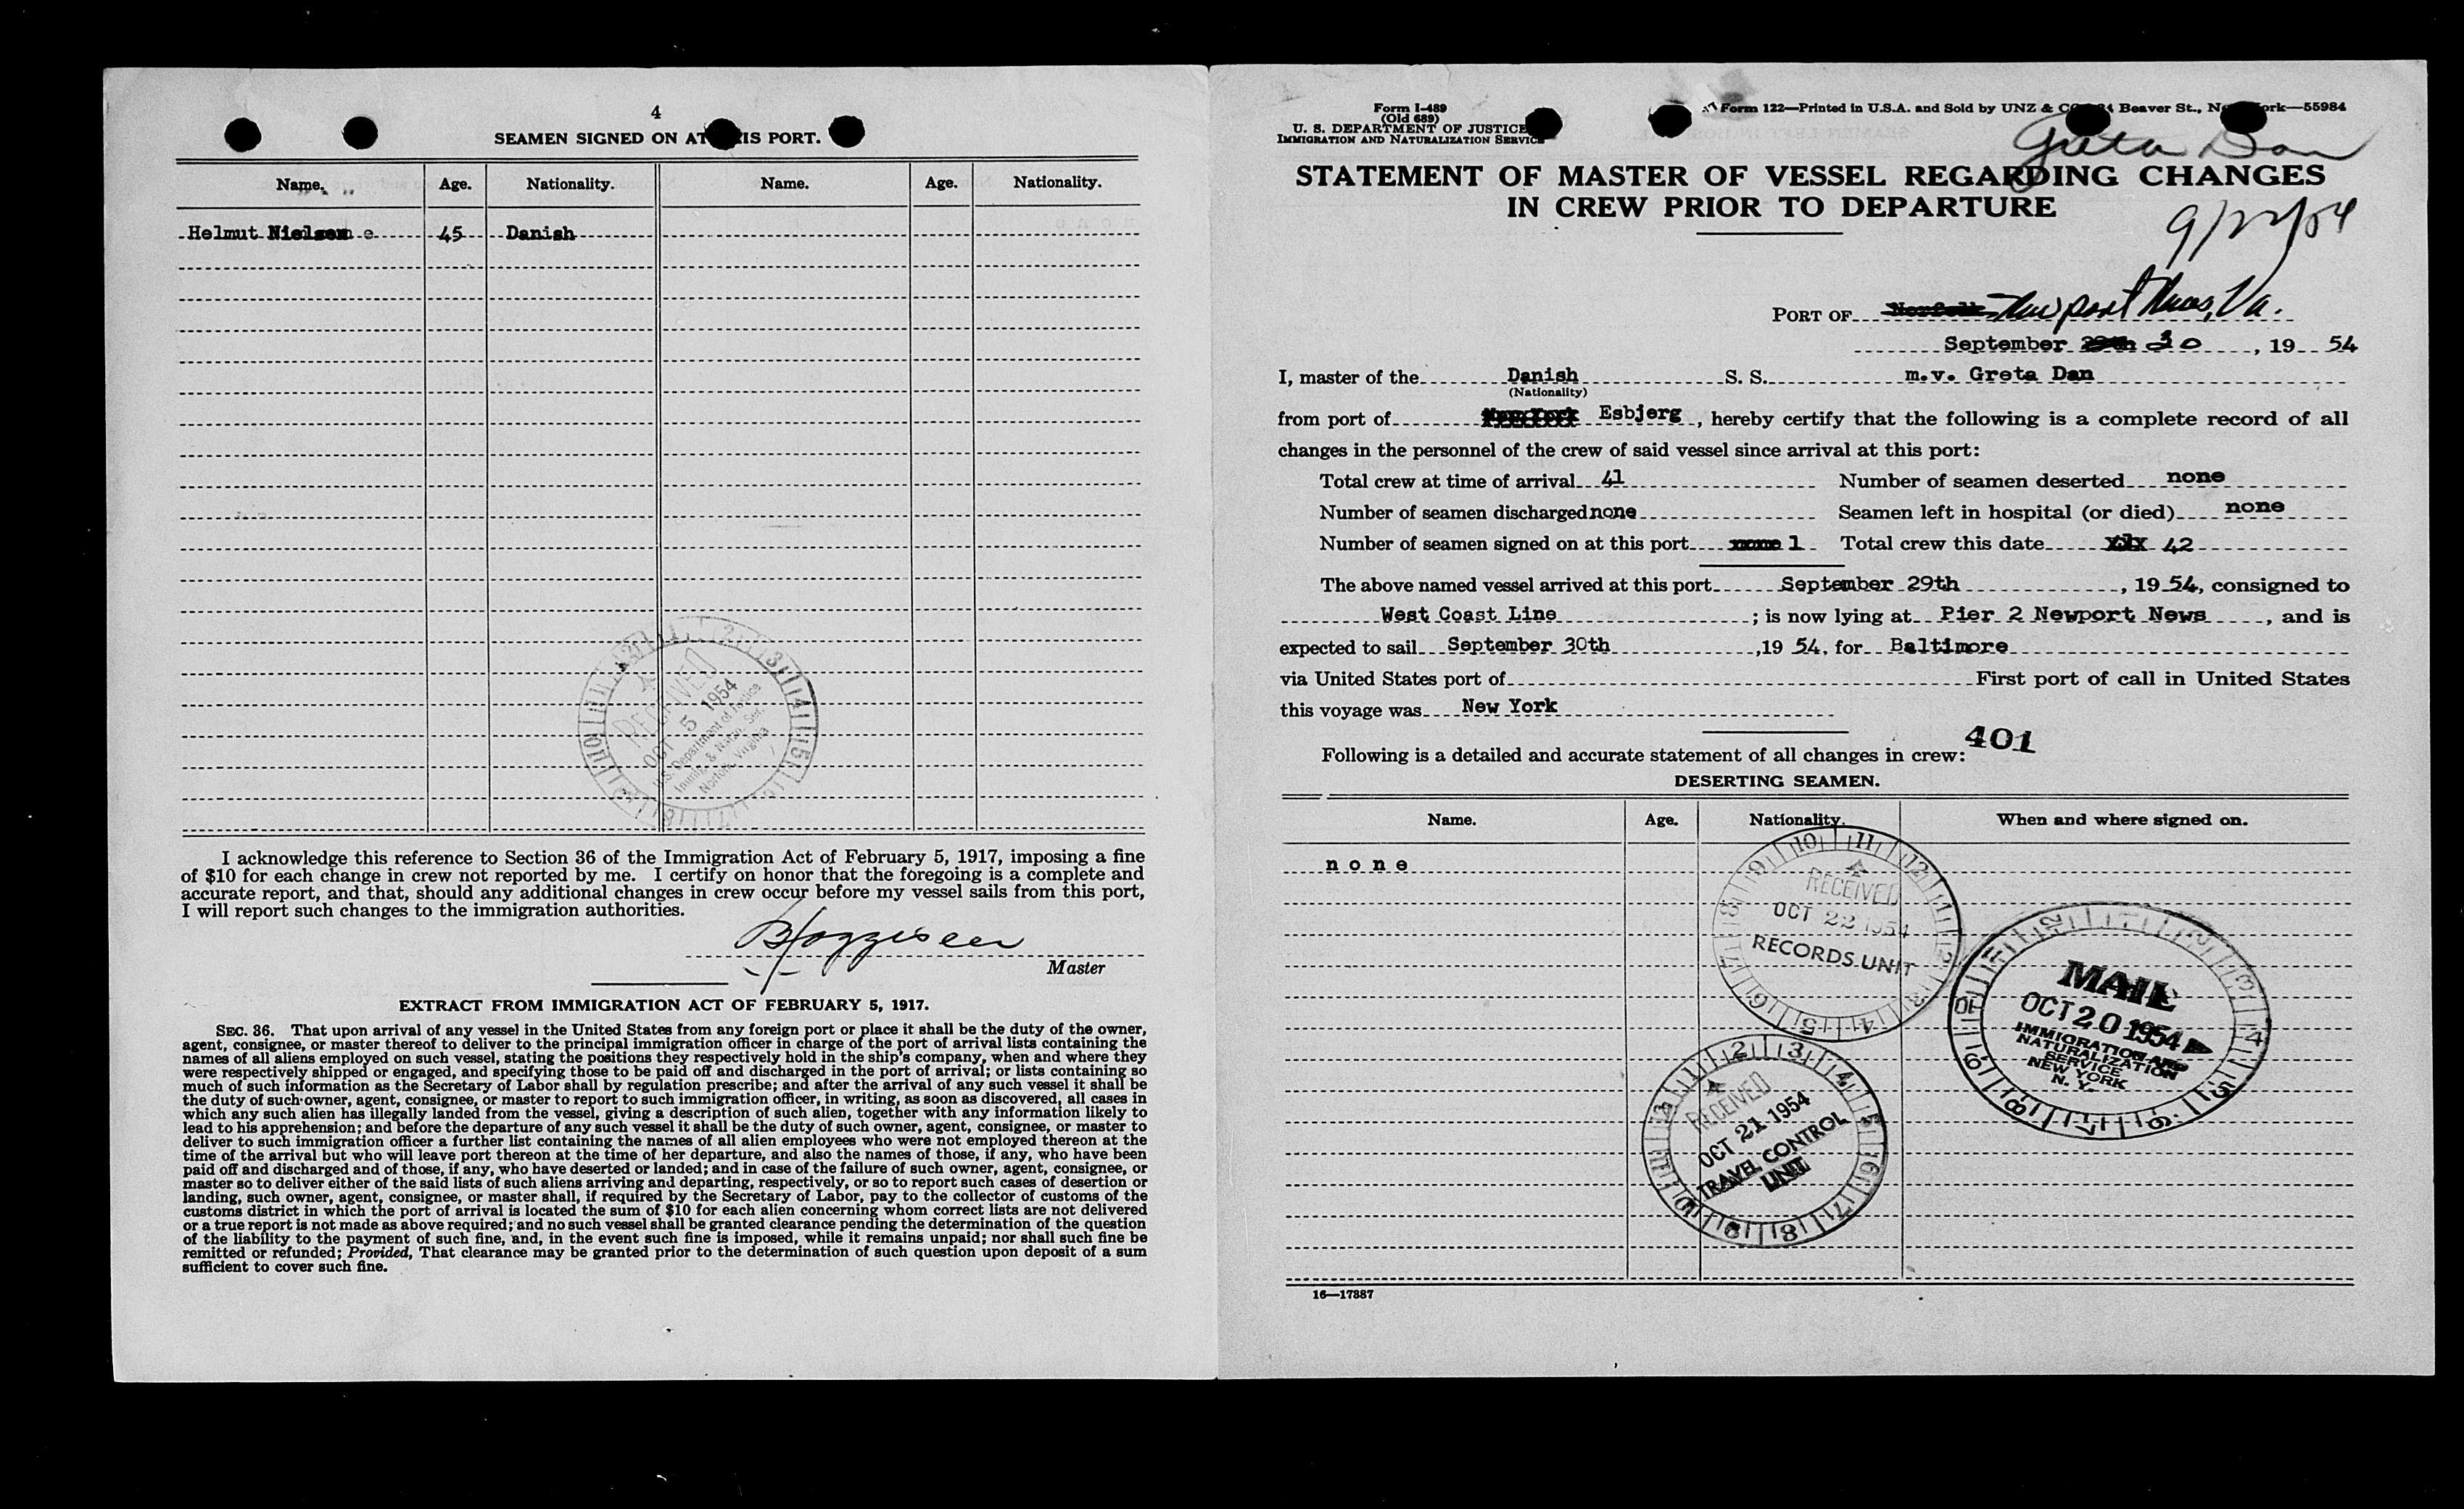 4
SEAMEN SIGNED ON AT THIS PORT.
Name. Age. Nationality. Name. Age. Nationality.
Helmut 45 Danish
RECEIVED
OCT 5 1954
U.S. Department of Justice
Immig. & Natzn. Ser.
Norfolk, Virginia
I acknowledge this reference to Section 36 of the Immigration Act of February 5, 1917, imposing a fine
of $10 for each change in crew not reported by me. I certify on honor that the foregoing is a complete and
accurate report, and that, should any additional changes in crew occur before my vessel sails from this port,
I will report such changes to the immigration authorities.
Master
EXTRACT FROM IMMIGRATION ACT OF FEBRUARY 5, 1917.
SEC. 36. That upon arrival of any vessel in the United States from any foreign port or place it shall be the duty of the owner,
agent, consignee, or master thereof to deliver to the principal immigration officer in charge of the port of arrival lists containing the
names of all aliens employed on such vessel, stating the positions they respectively hold in the ship's company, when and where they
were respectively shipped or engaged, and specifying those to be paid off and discharged in the port of arrival; or lists containing so
much of such information as the Secretary of Labor shall by regulation prescribe; and after the arrival of any such vessel it shall be
the duty of such owner, agent, consignee, or master to report to such immigration officer, in writing, as soon as discovered, all cases in
which any such alien has illegally landed from the vessel, giving a description of such alien, together with any information likely to
lead to his apprehension; and before the departure of any such vessel it shall be the duty of such owner, agent, consignee, or master to
deliver to such immigration officer a further list containing the names of all alien employees who were not employed thereon at the
time of the arrival but who will leave port thereon at the time of her departure, and also the names of those, if any, who have been
paid off and discharged and of those, if any, who have deserted or landed; and in case of the failure of such owner, agent, consignee, or
master so to deliver either of the said lists of such aliens arriving and departing, respectively, or so to report such cases of desertion or
landing, such owner, agent, consignee, or master shall, if required by the Secretary of Labor, pay to the collector of customs of the
customs district in which the port of arrival is located the sum of $10 for each alien concerning whom correct lists are not delivered
or a true report is not made as above required; and no such vessel shall be granted clearance pending the determination of the question
of the liability to the payment of such fine, and, in the event such fine is imposed, while it remains unpaid; nor shall such fine be
remitted or refunded; Provided, That clearance may be granted prior to the determination of such question upon deposit of a sum
sufficient to cover such fine.
Form I-489
(Old 689)
U. S. DEPARTMENT OF JUSTICE
IMMIGRATION AND NATURALIZATION SERVICE
Form 122—Printed in U.S.A. and Sold by UNZ & CO., Beaver St., New York—55984
Greta Dan
STATEMENT OF MASTER OF VESSEL REGARDING CHANGES
IN CREW PRIOR TO DEPARTURE
PORT OF Newport News, Va.
September 30, 1954
I, master of the Danish S. S. m.v. Greta Dan
(Nationality)
from port of Esbjerg, hereby certify that the following is a complete record of all
changes in the personnel of the crew of said vessel since arrival at this port:
Total crew at time of arrival 41 Number of seamen deserted none
Number of seamen discharged none Seamen left in hospital (or died) none
Number of seamen signed on at this port none 1 Total crew this date 42
The above named vessel arrived at this port September 29th, 1954, consigned to
West Coast Line; is now lying at Pier 2 Newport News, and is
expected to sail September 30th, 19 54, for Baltimore
via United States port of First port of call in United States
this voyage was New York
401
Following is a detailed and accurate statement of all changes in crew:
DESERTING SEAMEN.
Name. Age. Nationality. When and where signed on.
none
RECEIVED
OCT 22 1954
RECORDS UNIT
MAIL
OCT 20 1954
IMMIGRATION AND
NATURALIZATION
SERVICE
NEW YORK
N. Y.
RECEIVED
OCT 21 1954
TRAVEL CONTROL
UNIT
16—17887